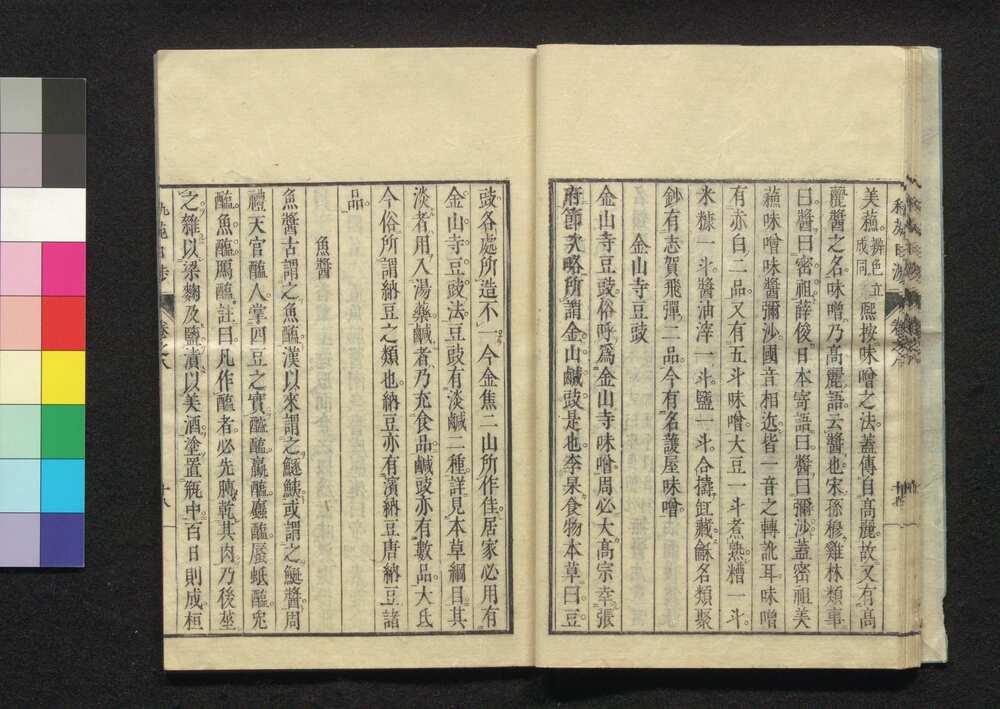 美蘓。辨色立成同。熙按味噌之法。蓋傳自髙麗。故又有髙
麗醬之名。味噌乃髙麗語。云醬也。宋孫穆。雞林類事
曰。醬曰密祖。薛俊。日本寄語曰。醬曰彌沙。蓋密祖美
蘓味噌味醬彌沙。國音相近。皆一音之轉訛耳。味噌
有赤白二品。又有五斗味噌。大豆一斗煮熟。糟一斗。
米糠一斗。醬油滓一斗。鹽一斗。合擣𥁕藏。龢名類聚
鈔有志賀飛彈二品。今有名護屋味噌。
金山寺豆豉
金山寺豆豉。俗呼爲金山寺味噌。周必大。髙宗幸張
府節次略所謂金山鹹豉是也。李杲。食物本草曰。豆
豉各處所造不一。今金焦二山所作佳。居家必用有
金山寺豆豉法。豆豉有淡鹹二種。詳見本草綱目。其
淡者。用入湯藥。鹹者。乃充食品。鹹豉亦有數品。大氐
今俗所謂納豆之類也。納豆亦有濱納豆唐納豆諸
品。
魚醬
魚醬古謂之魚醢。漢以來謂之鱁鮧。或謂之鋋醬。周
禮天官。醢人掌四豆之實。醓醢。蠃醢。蠯醢。蜃蚳醢。兔
醢。魚醢。鴈醢。註曰。凡作醢者。必先膊乾其肉。乃後莝
之。雜以梁麴及鹽。漬以美酒。塗置甀中。百日則成。桓
卷之八
十八